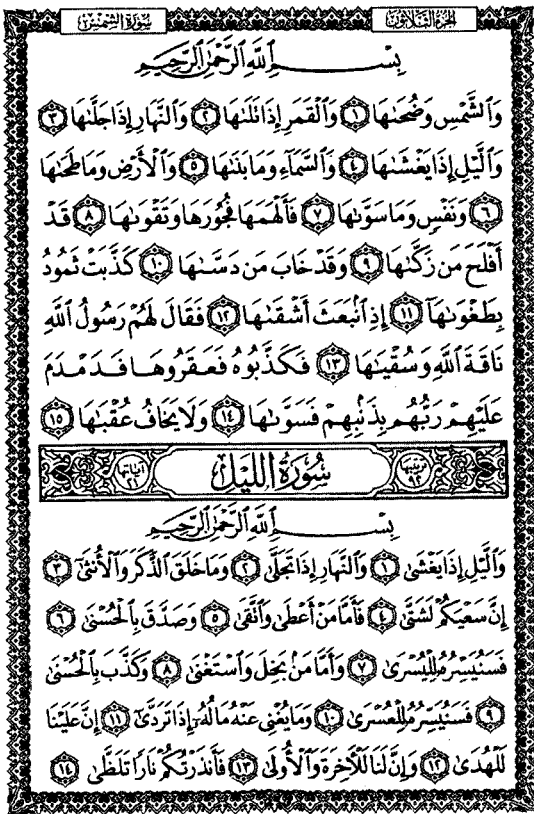 الجزء الثلاثون
سورة الشمس
بِسْمِ ٱللَّهِ ٱلرَّحْمَٰنِ ٱلرَّحِيمِ
وَٱلشَّمْسِ وَضُحَىٰهَا ١ وَٱلْقَمَرِ إِذَا تَلَىٰهَا ٢ وَٱلنَّهَارِ إِذَا جَلَّىٰهَا ٣
وَٱلَّيْلِ إِذَا يَغْشَىٰهَا ٤ وَٱلسَّمَآءِ وَمَا بَنَىٰهَا ٥ وَٱلْأَرْضِ وَمَا طَحَىٰهَا
٦ وَنَفْسٍ وَمَا سَوَّىٰهَا ٧ فَأَلْهَمَهَا فُجُورَهَا وَتَقْوَىٰهَا ٨ قَدْ
أَفْلَحَ مَن زَكَّىٰهَا ٩ وَقَدْ خَابَ مَن دَسَّىٰهَا ١٠ كَذَّبَتْ ثَمُودُ
بِطَغْوَىٰهَآ ١١ إِذِ ٱنۢبَعَثَ أَشْقَىٰهَا ١٢ فَقَالَ لَهُمْ رَسُولُ ٱللَّهِ
نَاقَةَ ٱللَّهِ وَسُقْيَٰهَا ١٣ فَكَذَّبُوهُ فَعَقَرُوهَا فَدَمْدَمَ
عَلَيْهِمْ رَبُّهُم بِذَنۢبِهِمْ فَسَوَّىٰهَا ١٤ وَلَا يَخَافُ عُقْبَٰهَا ١٥
ترتيبها ٩٢ سُورَةُ اللَّيْلِ آياتها ٢١
بِسْمِ ٱللَّهِ ٱلرَّحْمَٰنِ ٱلرَّحِيمِ
وَٱلَّيْلِ إِذَا يَغْشَىٰ ١ وَٱلنَّهَارِ إِذَا تَجَلَّىٰ ٢ وَمَا خَلَقَ ٱلذَّكَرَ وَٱلْأُنثَىٰٓ ٣
إِنَّ سَعْيَكُمْ لَشَتَّىٰ ٤ فَأَمَّا مَنْ أَعْطَىٰ وَٱتَّقَىٰ ٥ وَصَدَّقَ بِٱلْحُسْنَىٰ ٦
فَسَنُيَسِّرُهُۥ لِلْيُسْرَىٰ ٧ وَأَمَّا مَنۢ بَخِلَ وَٱسْتَغْنَىٰ ٨ وَكَذَّبَ بِٱلْحُسْنَىٰ
٩ فَسَنُيَسِّرُهُۥ لِلْعُسْرَىٰ ١٠ وَمَا يُغْنِى عَنْهُ مَالُهُۥٓ إِذَا تَرَدَّىٰٓ ١١ إِنَّ عَلَيْنَا
لَلْهُدَىٰ ١٢ وَإِنَّ لَنَا لَلْـَٔاخِرَةَ وَٱلْأُولَىٰ ١٣ فَأَنذَرْتُكُمْ نَارًا تَلَظَّىٰ ١٤